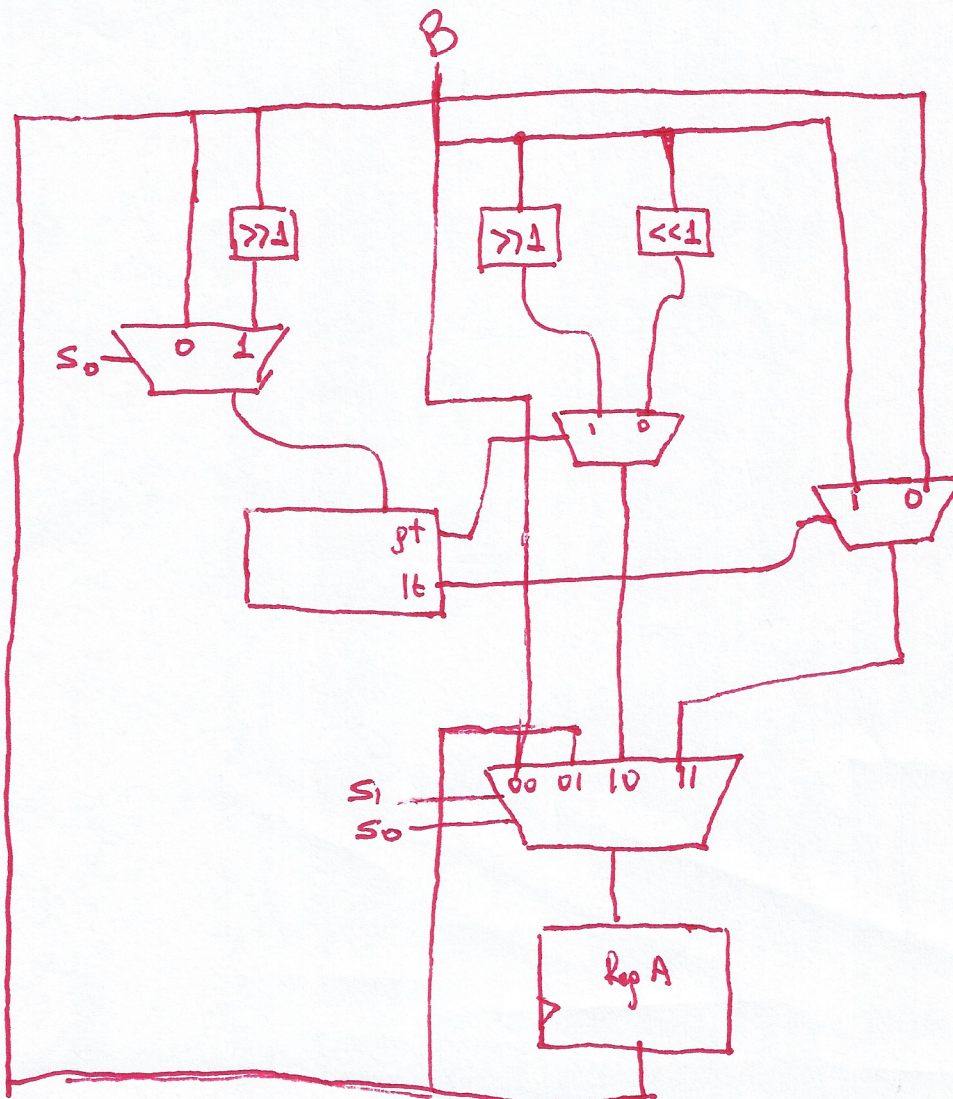 B
>>1
>>1
<<1
S0
0 1
1 0
1 0
gt
lt
S1
S0
00 01 10 11
Reg A